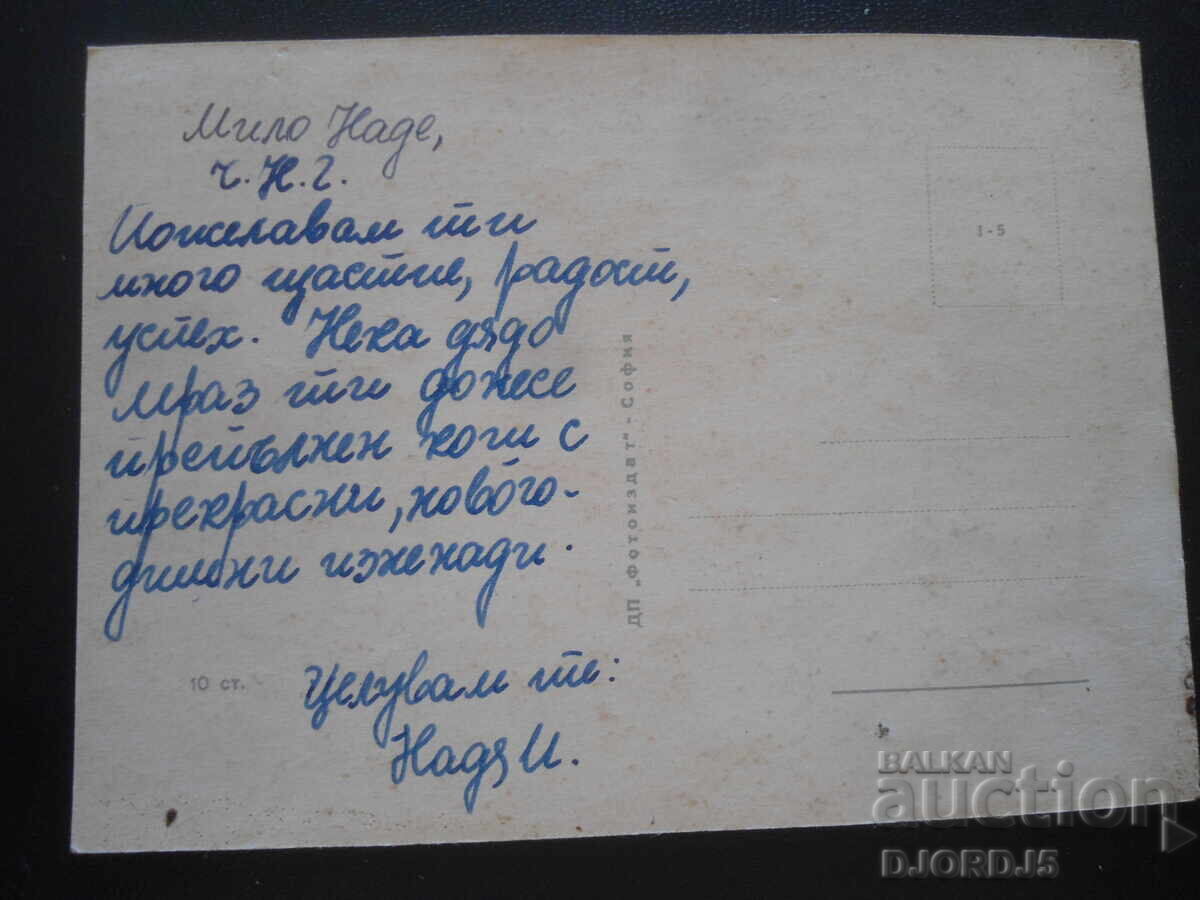 Мило Наде,
Ч.Н.Г.
Пожелавам ти
много щастие, радост,
успех. Нека дядо
Мраз ти донесе
препълнен кош с
прекрасни, нового-
дишни изненади.
Целувам те:
Надя И.
10 ст.
ДП „Фотоиздат" - София
1-5
BALKAN
auction
DJORDJ5